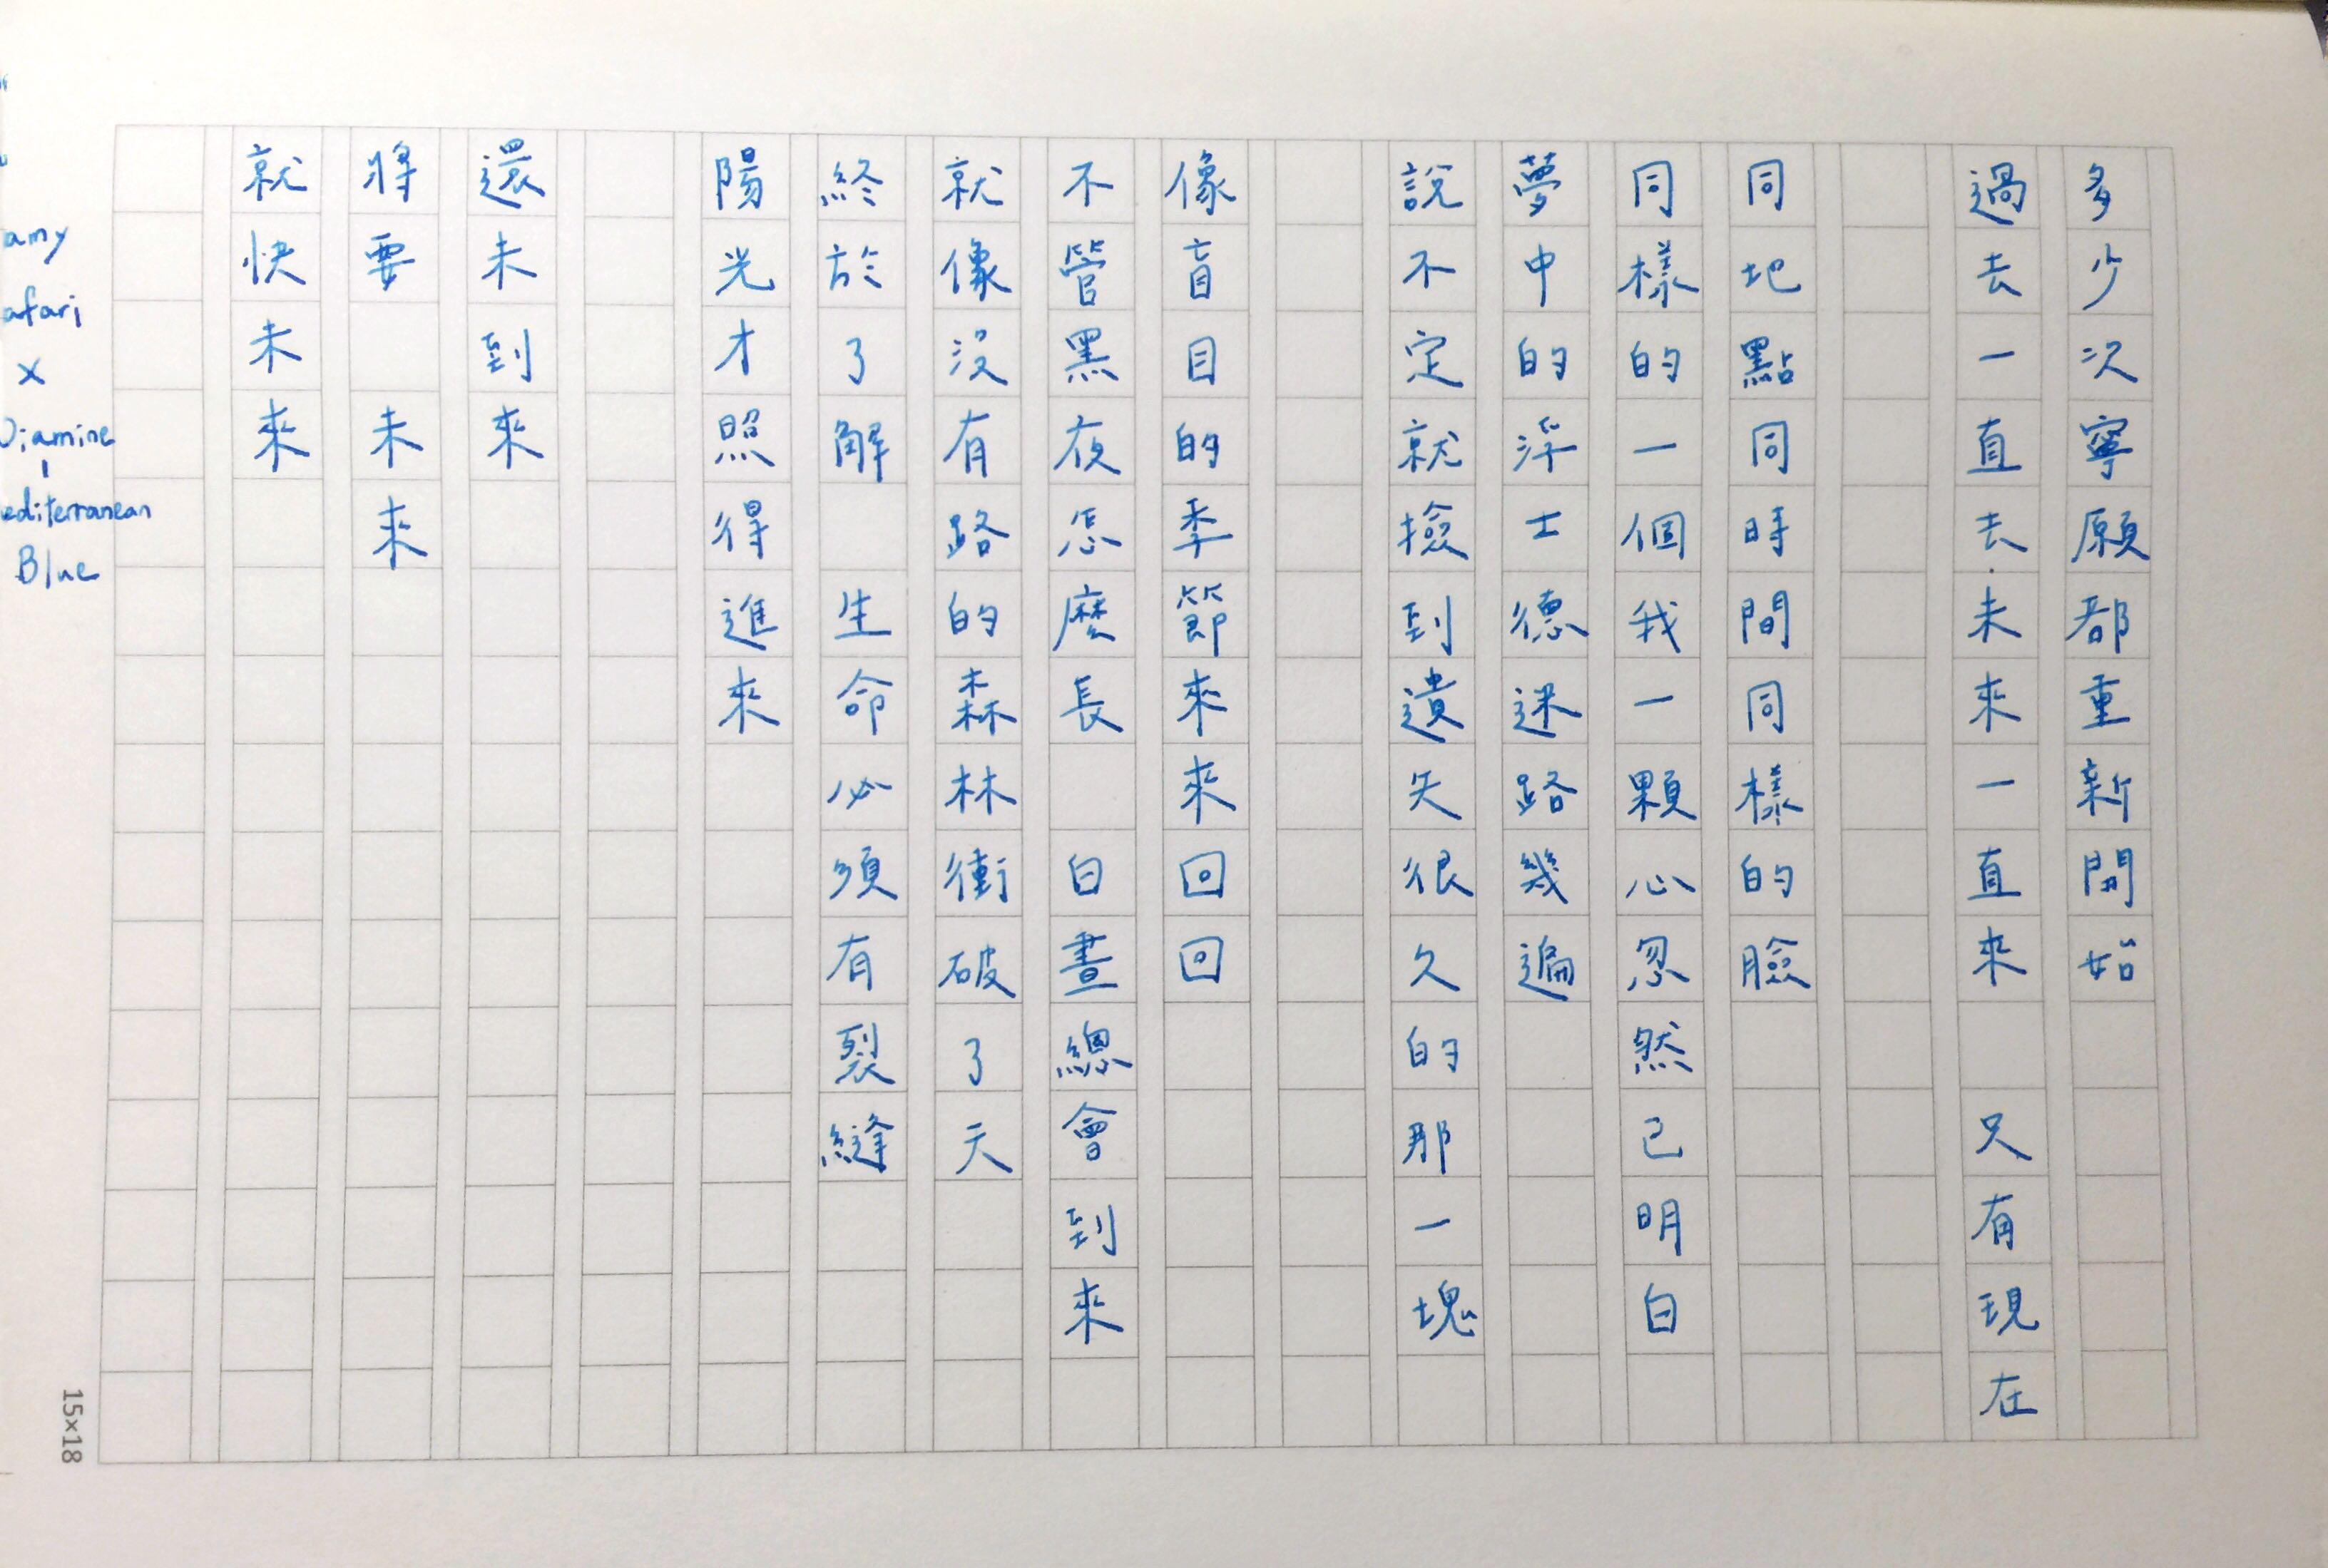 多少次寧願都重新開始
過去一直去未來一直來 只有現在
同地點同時間同樣的臉
同樣的一個我一顆心忽然已明白
夢中的浮士德迷路幾遍
說不定就撿到遺失很久的那一塊
像盲目的季節來來回回
不管黑夜怎麼長 白晝總會到來
就像沒有路的森林衝破了天
終於了解 生命必須有裂縫
陽光才照得進來
還未到來
將要 未來
就快未來
amy
afari
x
Diamine
-
editerranean
Blue
15×18